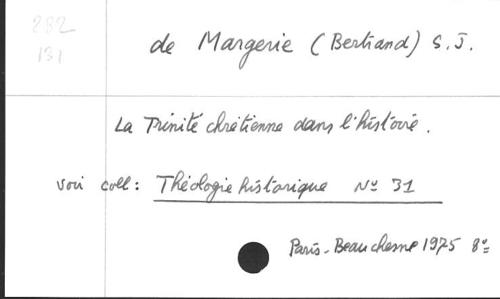 282
131
de Margerie (Bertrand) S.J.
La Trinité chrétienne dans l'histoire.
voir coll: Théologie historique No 31
Paris - Beauchesne 1975 8º